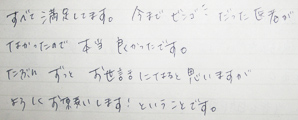 すべて満足してます。今まで だった医者が
なかったので本当良かったです。
たぶん ずっと お世話になると思いますが
よろしくお願いします!ということです。